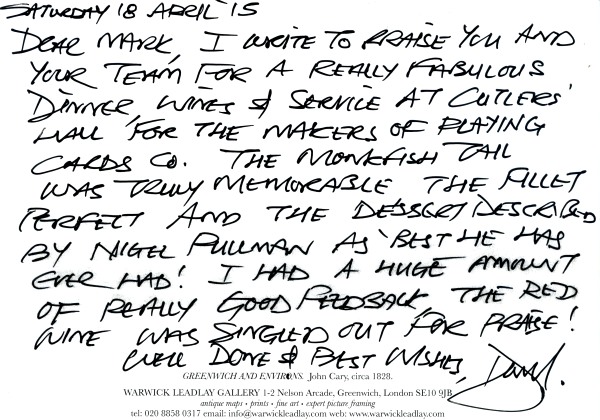 SATURDAY 18 APRIL '15
DEAR MARK, I WRITE TO PRAISE YOU AND
YOUR TEAM FOR A REALLY FABULOUS
DINNER, WINES & SERVICE AT CUTLERS'
HALL FOR THE MAKERS OF PLAYING
CARDS CO. THE MONKFISH TAIL
WAS TRULY MEMORABLE THE FILLET
PERFECT AND THE DESSERT DESCRIBED
BY NIGEL PULLMAN AS 'BEST HE HAS
EVER HAD! I HAD A HUGE AMOUNT
OF REALLY GOOD FEEDBACK, THE RED
WINE WAS SINGLED OUT FOR PRAISE!
WELL DONE & BEST WISHES,
GREENWICH AND ENVIRONS. John Cary, circa 1828.
WARWICK LEADLAY GALLERY 1-2 Nelson Arcade, Greenwich, London SE10 9JB
antique maps • prints • fine art • expert picture framing
tel: 020 8858 0317 email: info@warwickleadlay.com web: www.warwickleadlay.com